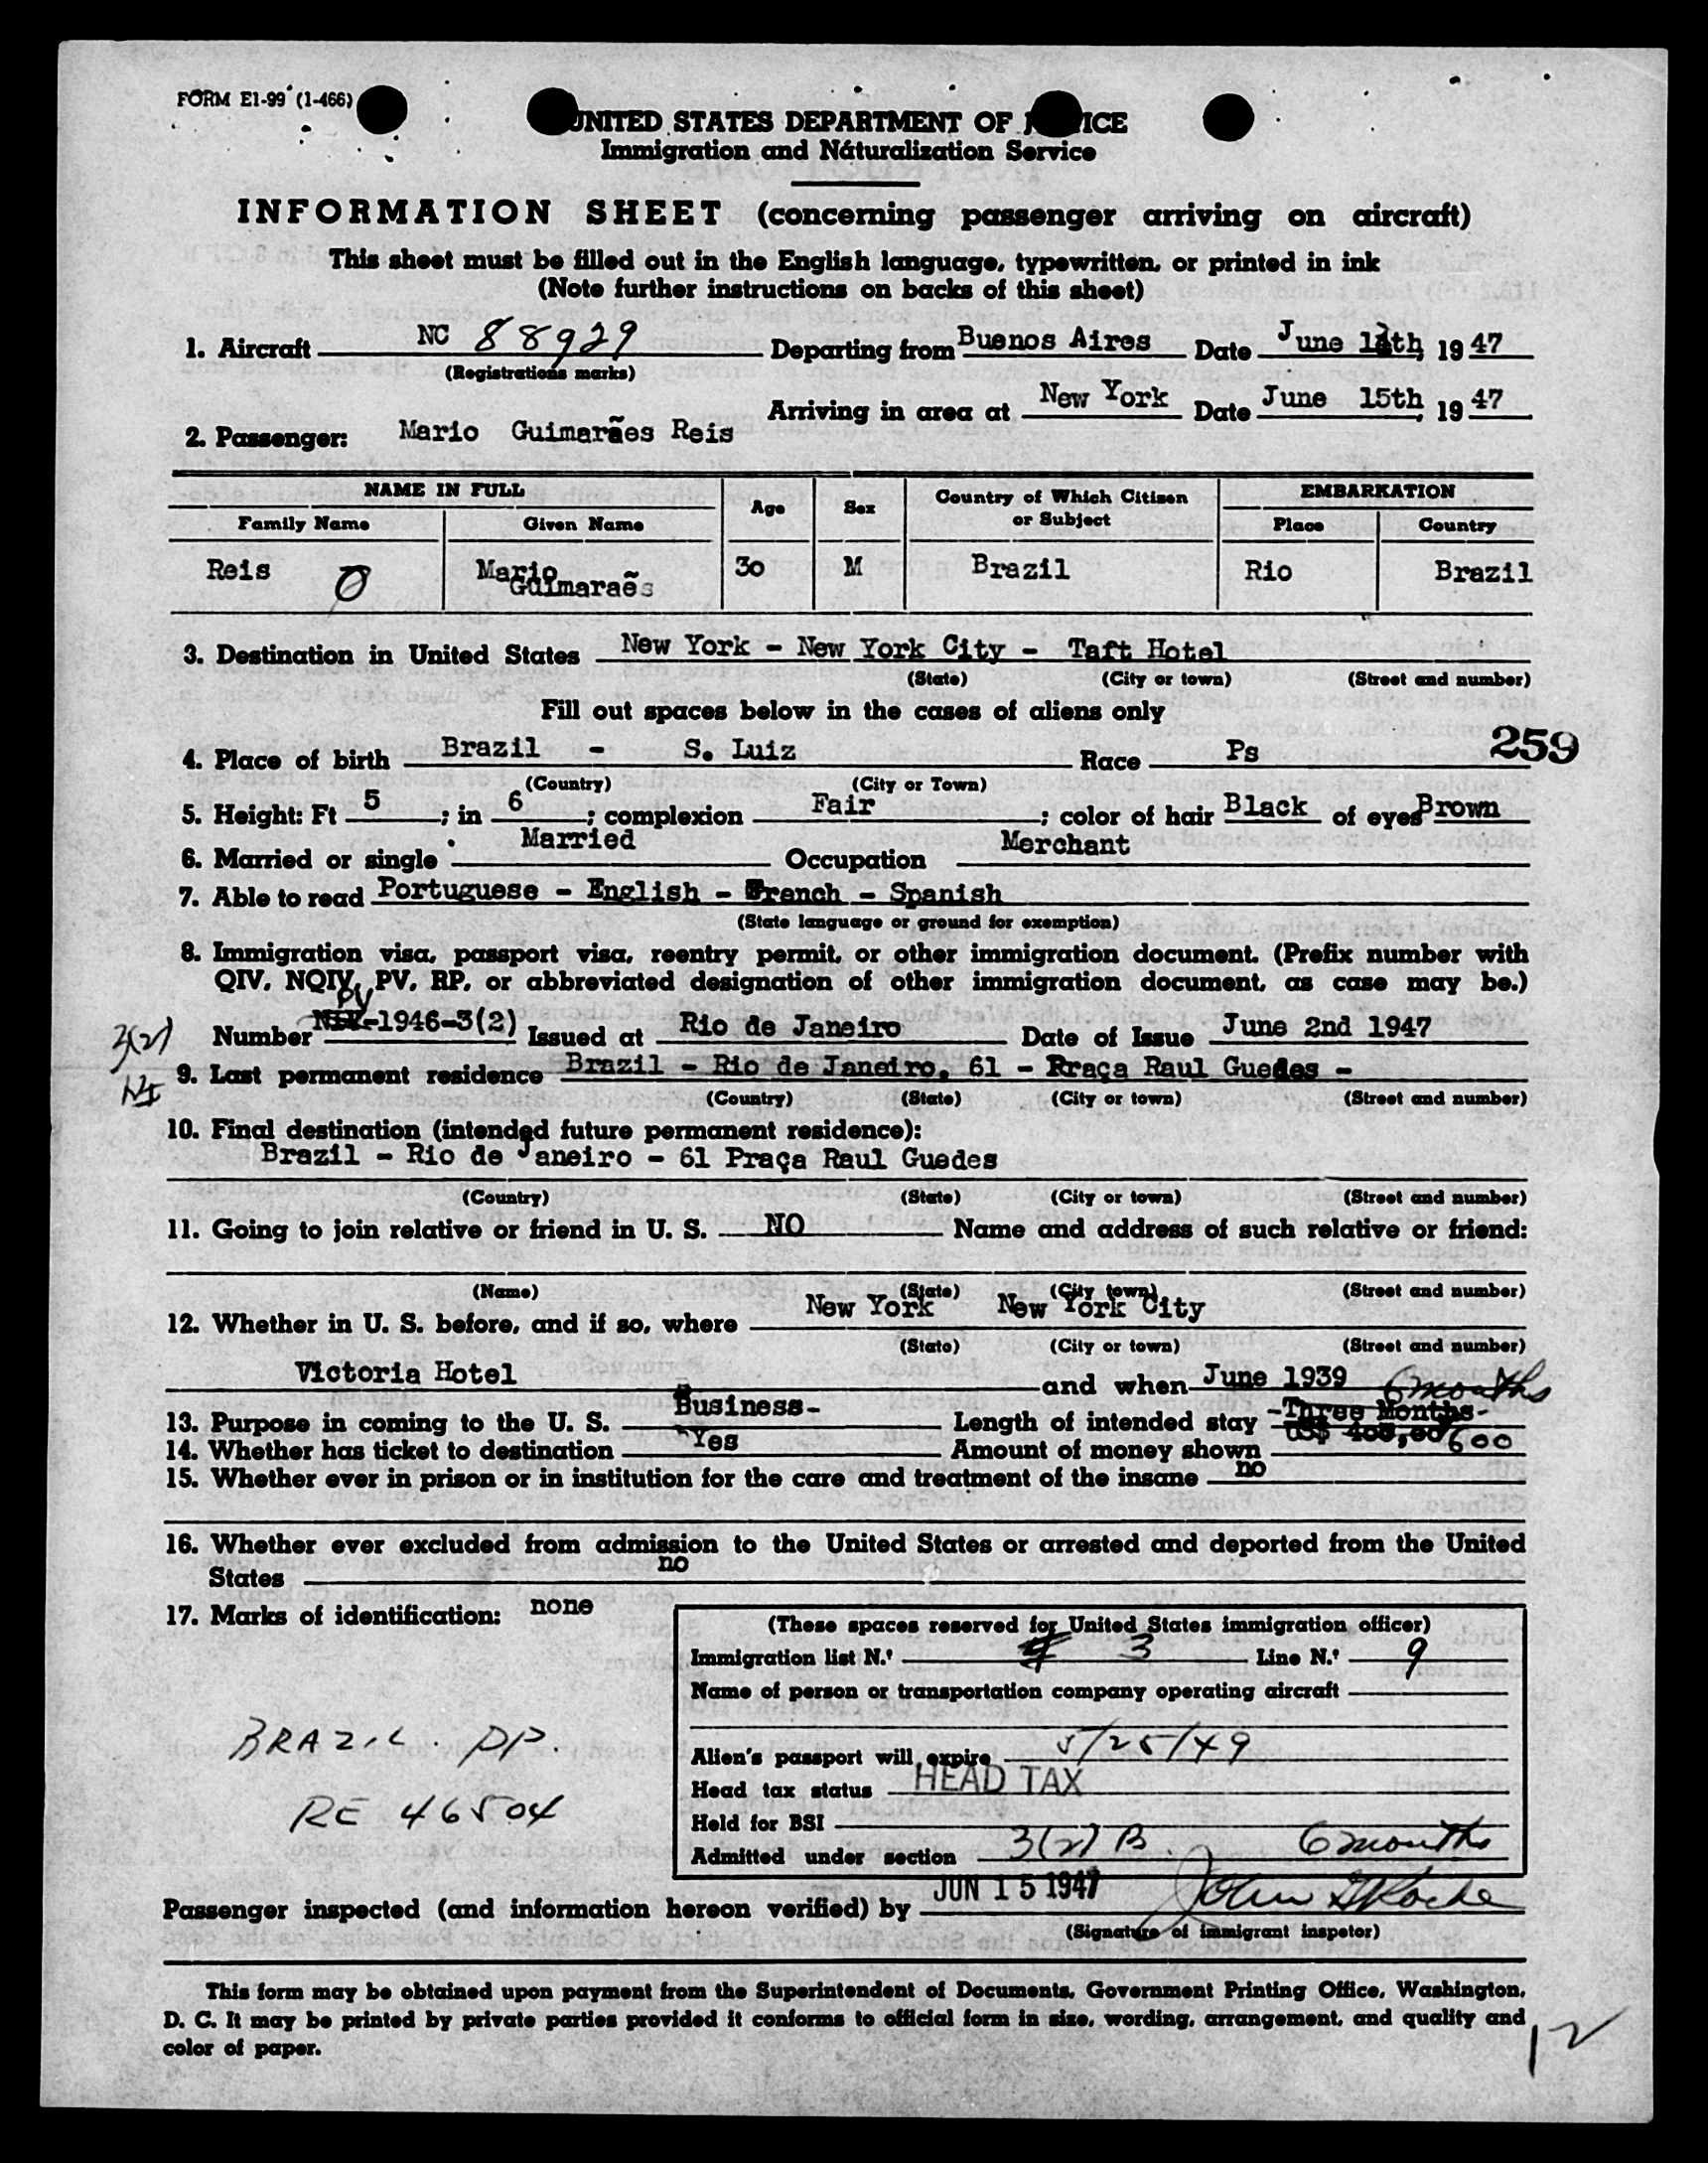 FORM E1-99 (1-466)
UNITED STATES DEPARTMENT OF J ICE
Immigration and Naturalization Service
INFORMATION SHEET (concerning passenger arriving on aircraft)
This sheet must be filled out in the English language, typewritten, or printed in ink
(Note further instructions on backs of this sheet)
1. Aircraft NC 88929 Departing from Buenos Aires Date June th 19 47
(Registrations marks)
Arriving in area at New York Date June 15th 19 47
2. Passenger: Mario Guimarães Reis
NAME IN FULL Age Sex Country of Which Citizen or Subject EMBARKATION
Family Name Given Name Place Country
Reis O Mario Guimaraẽs 30 M Brazil Rio Brazil
3. Destination in United States New York - New York City - Taft Hotel
(State) (City or town) (Street and number)
Fill out spaces below in the cases of aliens only
259
4. Place of birth Brazil - S. Luiz Race Ps
(Country) (City or Town)
5. Height: Ft 5 ; in 6 ; complexion Fair ; color of hair Black of eyes Brown
6. Married or single Married Occupation Merchant
7. Able to read Portuguese - English - French - Spanish
(State language or ground for exemption)
8. Immigration visa, passport visa, reentry permit, or other immigration document. (Prefix number with
QIV, NQIV, PV, RP, or abbreviated designation of other immigration document, as case may be.)
PV
3(2) Number -1946-3(2) Issued at Rio de Janeiro Date of Issue June 2nd 1947
NI 9. Last permanent residence Brazil - Rio de Janeiro, 61 - Praça Raul Guedes -
(Country) (State) (City or town) (Street and number)
10. Final destination (intended future permanent residence):
Brazil - Rio de Janeiro - 61 Praça Raul Guedes
(Country) (State) (City or town) (Street and number)
11. Going to join relative or friend in U. S. NO Name and address of such relative or friend:
(Name) (State) (City town) (Street and number)
12. Whether in U. S. before, and if so, where New York New York City
(State) (City or town) (Street and number)
Victoria Hotel and when June 1939 6 months
13. Purpose in coming to the U. S. Business- Length of intended stay -Three Months-
14. Whether has ticket to destination Yes Amount of money shown US$ 600
15. Whether ever in prison or in institution for the care and treatment of the insane no
16. Whether ever excluded from admission to the United States or arrested and deported from the United
States no
17. Marks of identification: none
(These spaces reserved for United States immigration officer)
Immigration list N.º 3 Line N.º 9
Name of person or transportation company operating aircraft
Alien's passport will expire 5/25/49
Head tax status HEAD TAX
Held for BSI
Admitted under section 3(2) B. 6 months
BRAZIL. PP.
RE 46504
Passenger inspected (and information hereon verified) by JUN 15 1947 John Roche
(Signature of immigrant inspetor)
This form may be obtained upon payment from the Superintendent of Documents, Government Printing Office, Washington,
D. C. It may be printed by private parties provided it conforms to official form in size, wording, arrangement, and quality and
color of paper.
12